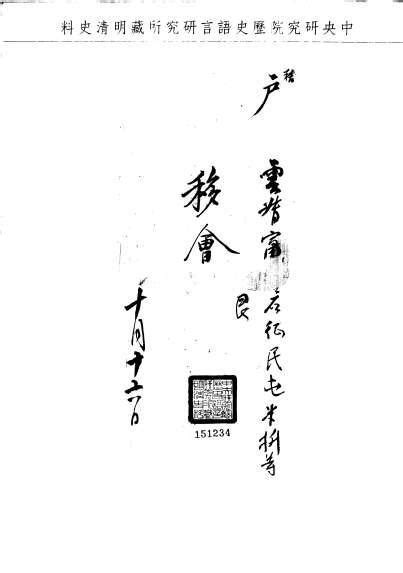 中央研究院歷史語言研究所藏明清史料
稽
戶
雲督富
征民屯米折等
艮
移會
十月十六日
151234